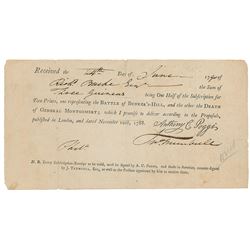 Received the 4th Day of June 1790 of
Richd Esqr the Sum of
Three Guineas being One Half of the Subscription for
Two Prints, one representing the BATTLE of BUNKER'S-HILL, and the other the DEATH
of GENERAL MONTGOMERY; which I promise to deliver according to the Proposals,
published in London, and dated November 1788.
Anthony C. Poggi
Jno Trumbull
N. B. Every Subscription-Receipt to be valid, must be signed by A. C. POGGI, and those in America, counter-signed
by J. TRUMBULL, Esq; as well as the Person appointed by him to receive them.